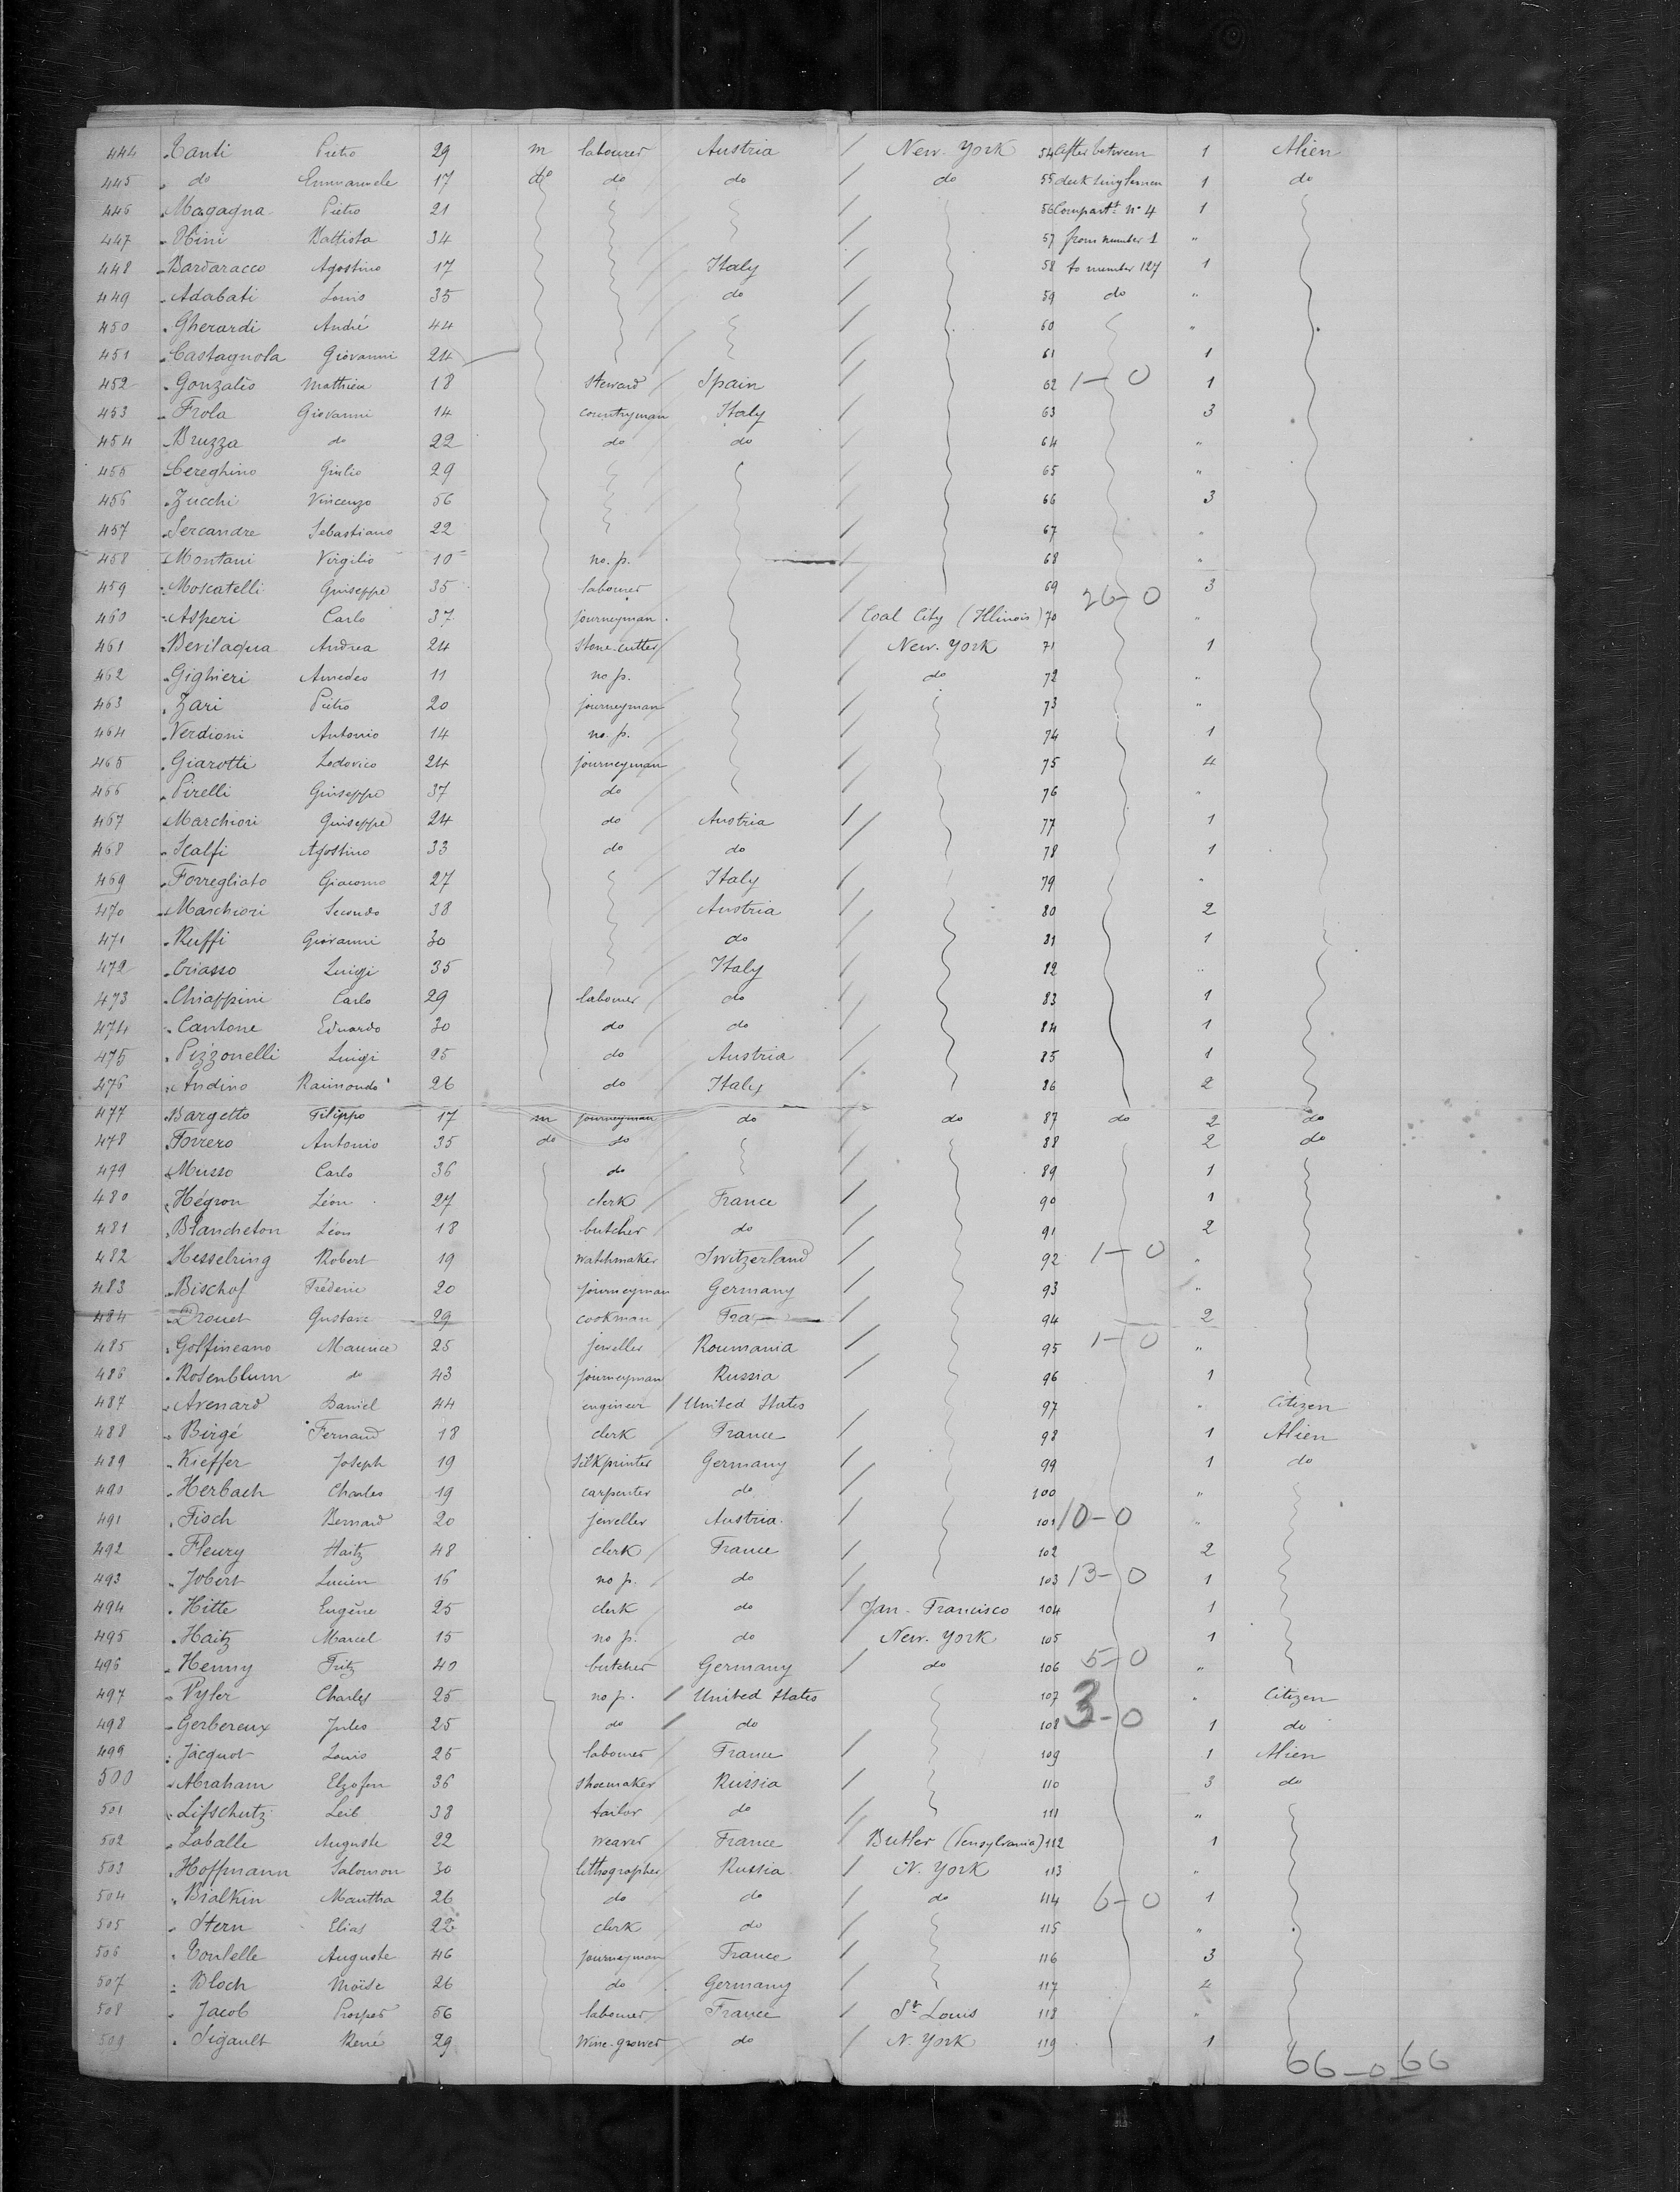 444 Tanti Pietro 29 m labourer Austria / New-York 54 After between 1 Alien
445 " do Emmanuele 17 do do do / do 55 deck single men 1 do
446 Magagna Pietro 21 / 56 Compart.t N° 4 1
447 Obini Battista 34 / 57 from number 1 "
448 Bardaracco Agostino 17 Italy / 58 to number 127 1
449 Adabati Louis 35 do / 59 do "
450 Gherardi André 44 / 60 "
451 Castagnola Giovanni 24 / 61 1
452 Gonzalio Mathieu 18 Steward / Spain / 62 1-0 1
453 Frola Giovanni 14 countryman Italy / 63 3
454 Bruzza do 22 do do / 64 "
455 Cereghino Giulio 29 / 65 "
456 Zucchi Vincenzo 56 / 66 3
457 Sercandre Sebastiano 22 / 67 "
458 Montani Virgilio 10 no. p. / 68 "
459 Moscatelli Guiseppe 35 labourer / 69 3
460 Asperi Carlo 37 journeyman / Coal City (Illinois) 70 26-0 "
461 Bevilaqua Andrea 24 Stone-cutter / New-York 71 1
462 Gighieri Amedeo 11 no p. / do 72 "
463 Zari Pietro 20 journeyman / 73 "
464 Verdioni Antonio 14 no. p. / 74 1
465 Giarotti Lodovico 24 journeyman / 75 4
466 Pirelli Guiseppe 37 do / 76 "
467 Marchiori Guiseppe 24 do Austria / 77 1
468 Scalfi Agostino 33 do do / 78 1
469 Forregliato Giacomo 27 Italy / 79 "
470 Marchiori Secondo 38 Austria / 80 2
471 Ruffi Giovanni 30 do / 81 1
472 Criasso Luigi 35 Italy / 82 "
473 Chiappini Carlo 29 labourer do / 83 1
474 Cantone Eduardo 30 do do / 84 1
475 Pizzonelli Luigi 25 do Austria / 85 1
476 Andino Raimondo 26 do Italy / 86 2
477 Bargetto Filippo 17 m journeyman do do 87 do 2 do
478 Forrero Antonio 35 do do / 88 2 do
479 Musso Carlo 36 do / 89 1
480 Hégron Léon 27 clerk / France / 90 1
481 Blancheton Léon 18 butcher / do / 91 2
482 Hesselring Robert 19 watchmaker Switzerland / 92 1-0 "
483 Bischof Fréderic 20 journeyman Germany / 93 "
484 Drouet Gustave 29 cookman / Fra / 94 2
485 Golfineano Maurice 25 jeweller / Roumania / 95 1-0 "
486 Rosenblum do 43 journeyman Russia / 96 1
487 Avenard Daniel 44 engineer / United States 97 " Citizen
488 Birgé Fernand 18 clerk / France / 98 1 Alien
489 Kieffer Joseph 19 Silkprinter Germany / 99 1 do
490 Herbach Charles 19 carpenter do / 100 "
491 Fisch Bernard 20 jeweller Austria / 101 10-0 "
492 Fleury Haitz 48 clerk France / 102 2
493 Jobert Lucien 16 no p. do / 103 13-0 1
494 Hitte Eugène 25 clerk do / San-Francisco 104 1
495 Haitz Marcel 15 no p. do / New-York 105 1
496 Henny Fritz 40 butcher Germany / do 106 5-0 "
497 Pyler Charles 25 no p. / United States 107 " Citizen
498 Gerbereux Jules 25 do / do 108 3-0 1 do
499 Jacquot Louis 26 labourer France / 109 1 Alien
500 Abraham 36 shoemaker Russia / 110 3 do
501 Lifschutz Leib 38 tailor do / 111 "
502 Laballe Auguste 22 weaver France / Butler (Pensylvania) 112 1
503 Hoffmann Salomon 30 lithographer Russia / N. York 113 "
504 Bialkin Mautha 26 do do / do 114 6-0 1
505 Stern Elias 22 clerk do / 115 "
506 Toutelle Auguste 46 journeyman France / 116 3
507 Bloch Moïse 26 do Germany / 117 4
508 Jacob Prosper 56 labourer France / St Louis 118 "
509 Sigault René 29 Wine-grower do / N. York 119 1
66-0 66